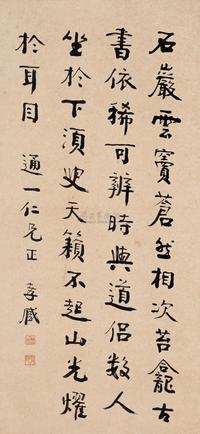 石巖雲竇蒼然相次苔龕古
書依稀可辨時與道侶數人
坐於下須臾天籟不起山光耀
於耳目 通一仁兄正 孝臧